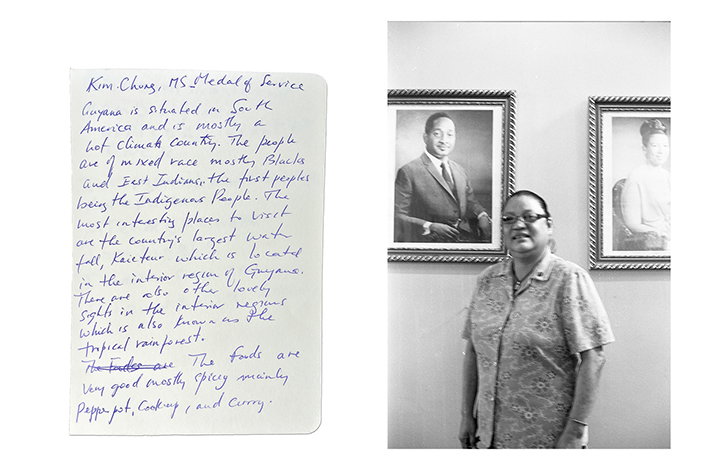 Kim Chung, MS - Medal of Service
Guyana is situated in South
America and is mostly a
hot climate country. The people
are of mixed race mostly Blacks
and East Indians, the first peoples
being the Indigenous People. The
most interesting places to visit
are the country's largest water
fall, Kaieteur which is located
in the interior region of Guyana.
There are also other lovely
sights in the interior regions
which is also known as the
tropical rainforest.
The foods are The foods are
very good mostly spicy mainly
Pepperpot, Cookup, and Curry.